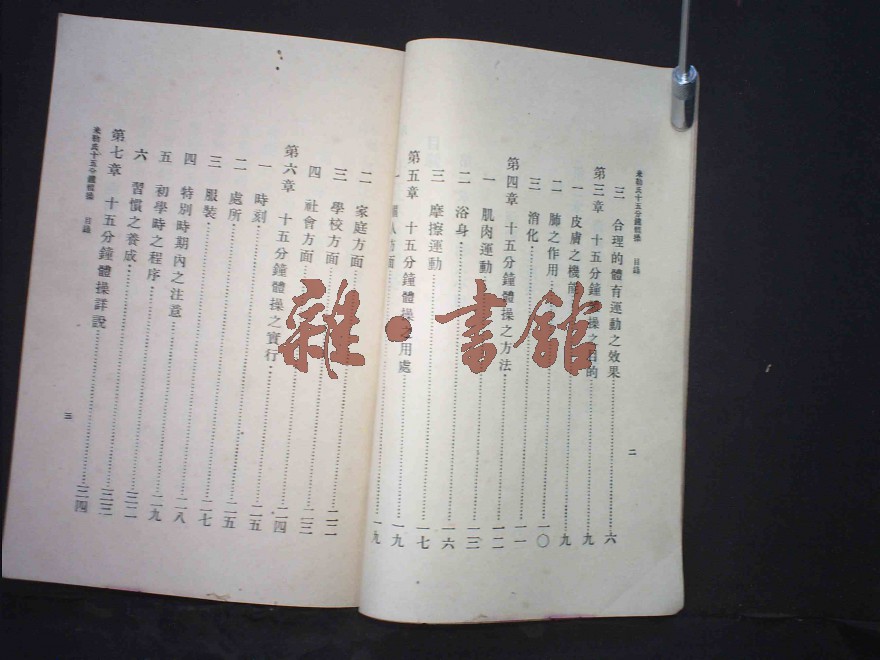 米勒氏十五分鐘體操 目錄
二
三 合理的體育運動之效果……六
第三章 十五分鐘體操之目的……九
一 皮膚之機能……九
二 肺之作用……一〇
三 消化……一一
第四章 十五分鐘體操之方法……一二
一 肌肉運動……一三
二 浴身……一六
三 摩擦運動……一七
第五章 十五分鐘體操之用處……一九
一 個人方面……一九
二 家庭方面……二二
三 學校方面……二三
四 社會方面……二四
第六章 十五分鐘體操之實行……二五
一 時刻……二五
二 處所……二七
三 服裝……二八
四 特別時期內之注意……二九
五 初學時之程序……三二
六 習慣之養成……三三
第七章 十五分鐘體操詳說……三四
米勒氏十五分鐘體操 目錄
三
雜·書館